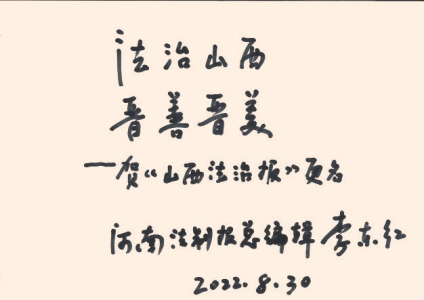 法治山西
晋善晋美
——贺“山西法治报”更名
河南法制报总编辑 李东红
2022.8.30